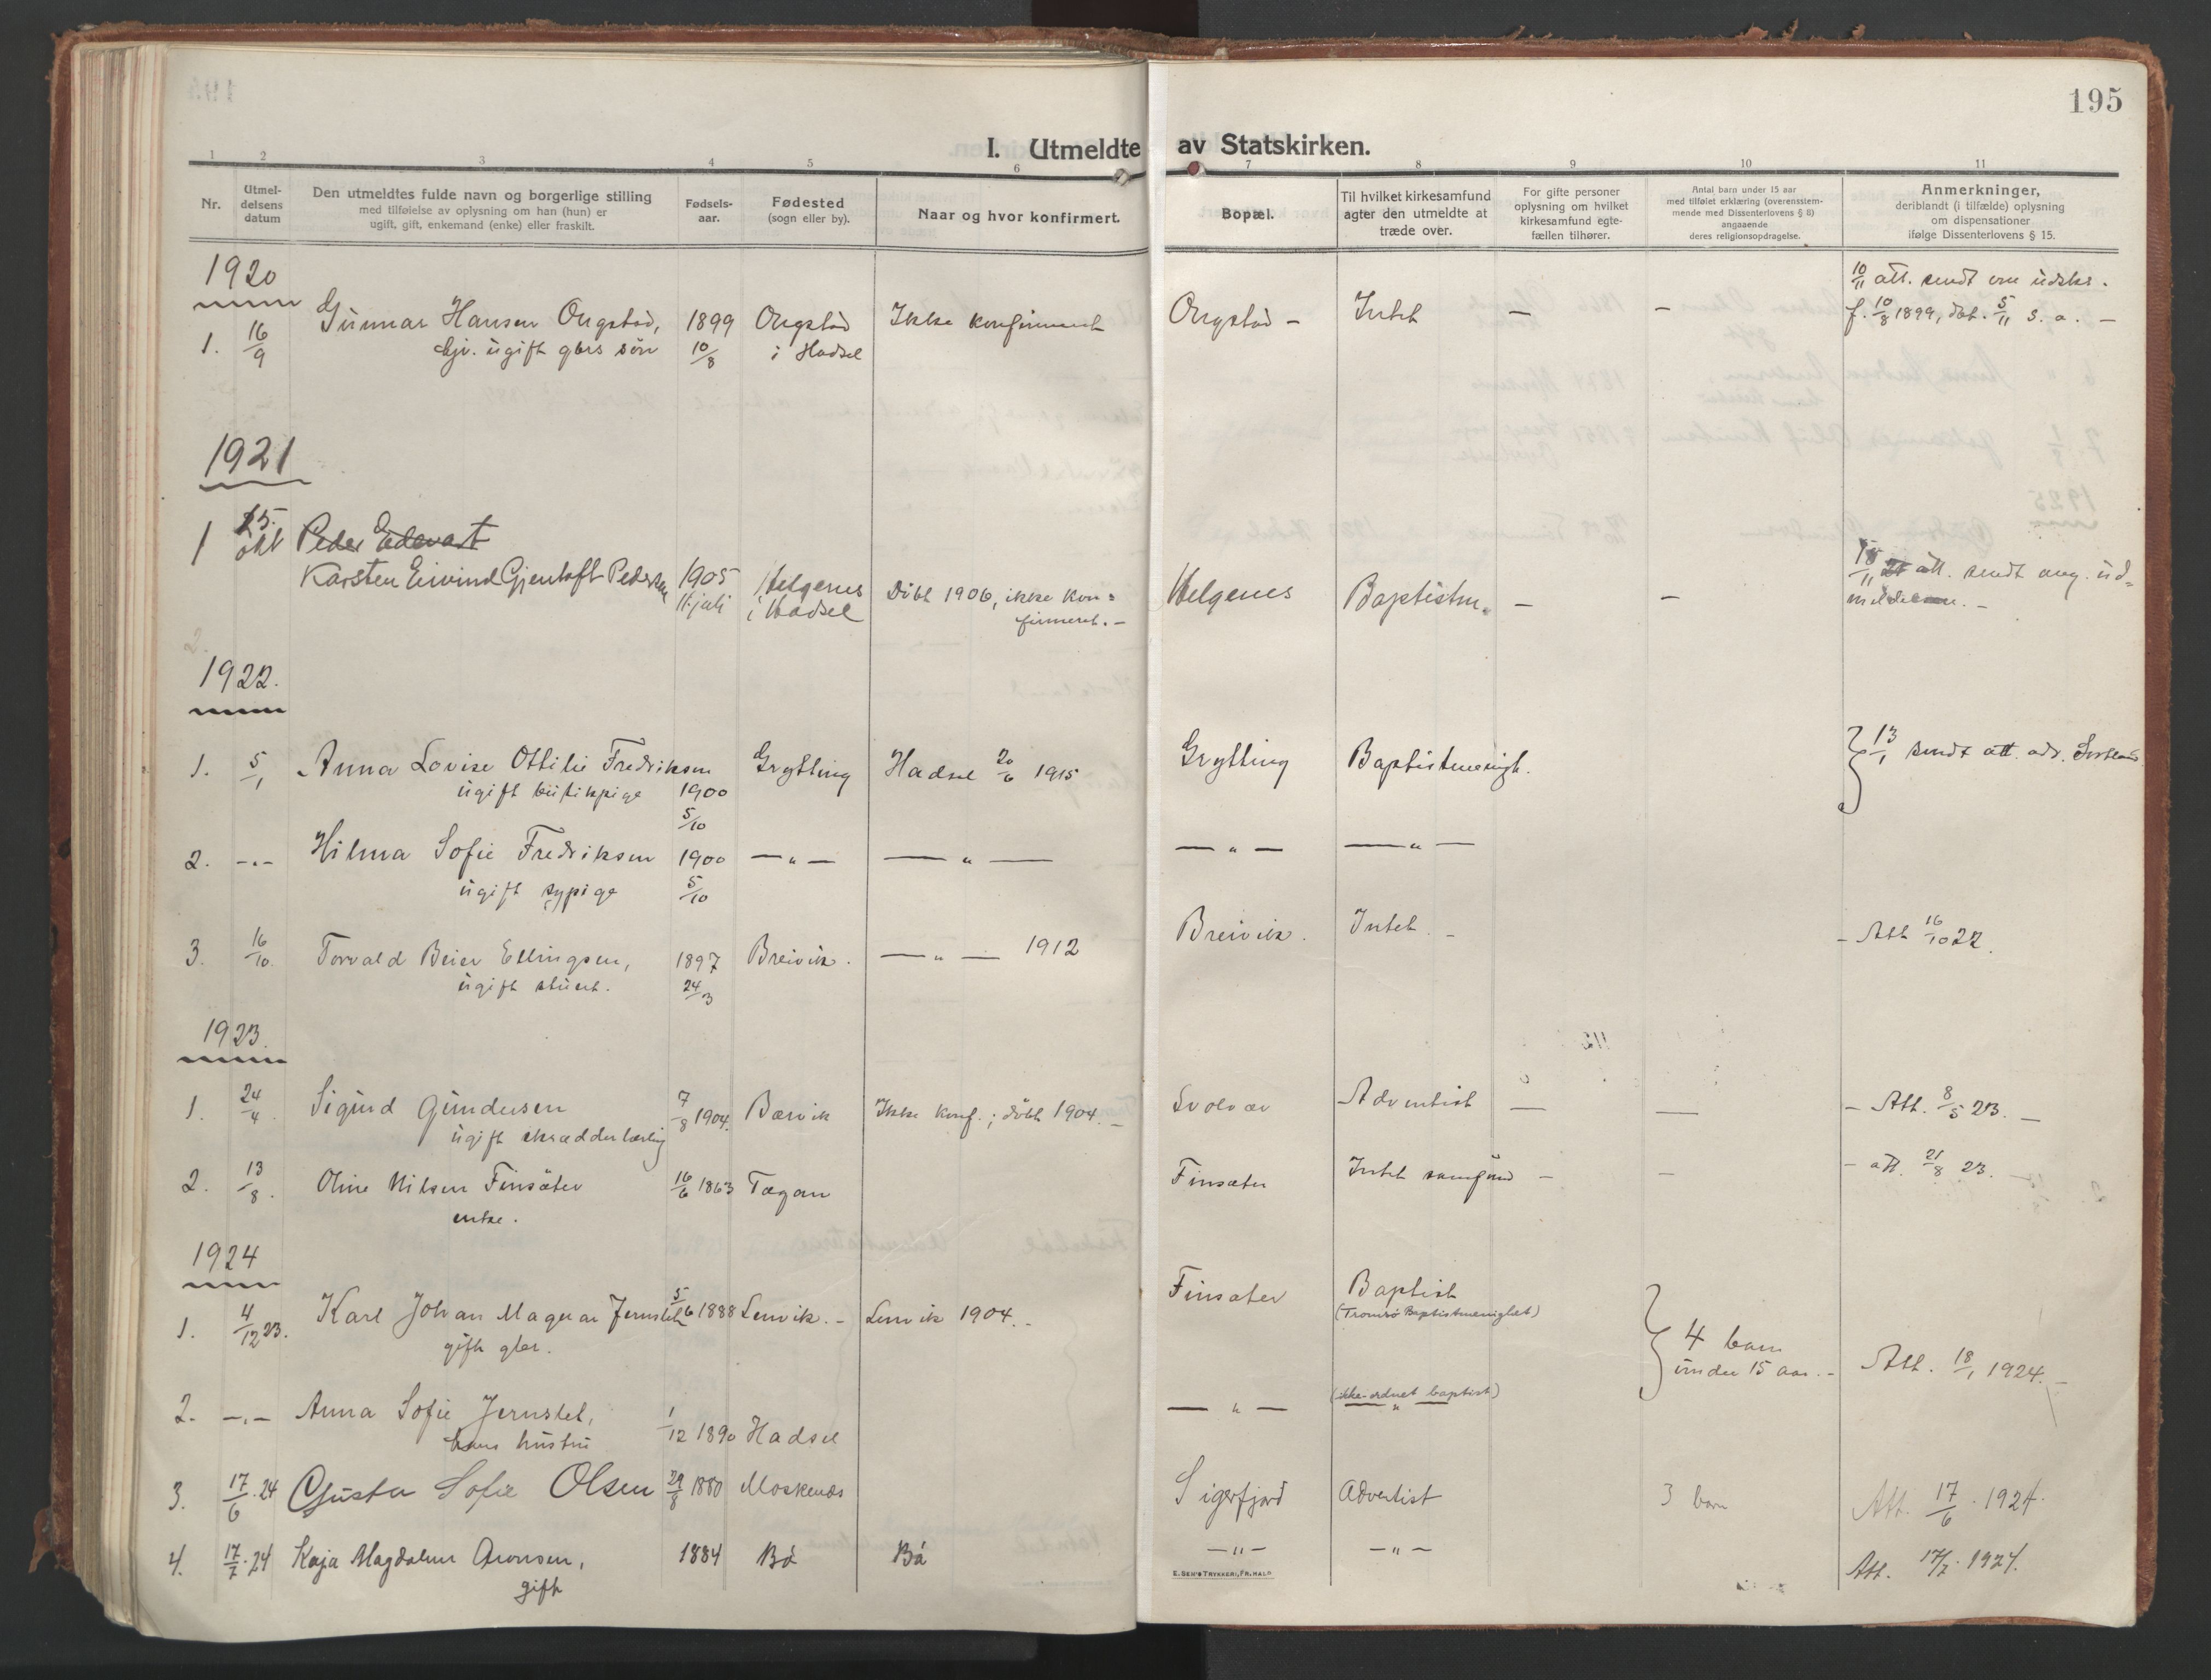 195
I. Utmeldte av Statskirken.
1 2 3 4 5 6 7 8 9 10 11
Nr.
Utmel-
delsens
datum
Den utmeldtes fulde navn og borgerlige stilling
med tilføielse av oplysning om han (hun) er
ugift, gift, enkemand (enke) eller fraskilt.
Fødsels-
aar.
Fødested
(sogn eller by).
Naar og hvor konfirmert.
Bopæl.
Til hvilket kirkesamfund
agter den utmeldte at
træde over.
For gifte personer
oplysning om hvilket
kirkesamfund egte-
fællen tilhører.
Antal barn under 15 aar
med tilføiet erklæring (overensstem-
mende med Dissenterlovens § 8)
angaaende
deres religionsopdragelse.
Anmerkninger,
deriblandt (i tilfælde) oplysning
om dispensationer
ifølge Dissenterlovens § 15.
1920
1. 16/9 Gunnar Hansen Ongstad, 1899 Ongstad Ikke konfirmert Ongstad – Intet – – 10/11 att. sendt om udskr.
ugift gbrs søn 10/8 i Hadsel f. 10/8 1899, døbt. 5/11 s. a. –
1921
1 25. okt Peder Edevart
Karsten Eivind Gjentoft Pedersen 1905 Helgenes Døbt 1906, ikke kon= Helgenes Baptistm. – – 18/11 att. sendt ang. ud=
11. juli i Hadsel firmeret. – meldelsen. –
1922.
1. 5/1 Anna Lovise Ottilie Fredriksen Grytting Hadsel 20/6 1915 Grytting Baptistmenigh. 13/1 sendt att. adr. Sortland
ugift butikpige 1900 5/10
2. -"- Hilma Sofie Fredriksen 1900 —"— —"— —"— —"—
ugift sypige 5/10
3. 16/10. Torvald Beier Ellingsen, 1897 Breivik. —"— 1912 Breivik. Intet. – – Att 16/10 22.
ugift stud. 24/3
1923.
1. 24/4. Sigurd Gundersen 7/8 1904. Børvik Ikke konf.; døbt 1904. – Svolvær Adventist — — – Att. 8/5 23. –
ugift skrædderlærling
2. 13/8. Oline Nilsen Finsæter 16/6 1863 Finsæter Intet samfund – – – att. 21/8 23. –
enke.
1924
1. 4/12 23. Karl Johan Magnar Jernslet 5/6 1888 Lenvik. – Lenvik 1904. – Finsæter Baptist
(Tromsø Baptistmenighet)
gift gbr. 4 barn
under 15 aar. – Att. 18/1 1924. –
2. -"- Anna Sofie Jernslet, 1/12 1890 Hadsel —"— (ikke-ordnet baptist)
—"—
hans hustru
3. 17/6. 24 Gusta Sofie Olsen 29/8 1880 Moskenæs Sigerfjord Adventist 3 barn Att. 17/6. 1924.
4. 17/7. 24 Kaja Magdalene Aronsen, 1884 Bø Bø —"— —"— Att. 17/7. 1924.
gift
E. SEM'S TRYKKERI, FR.HALD